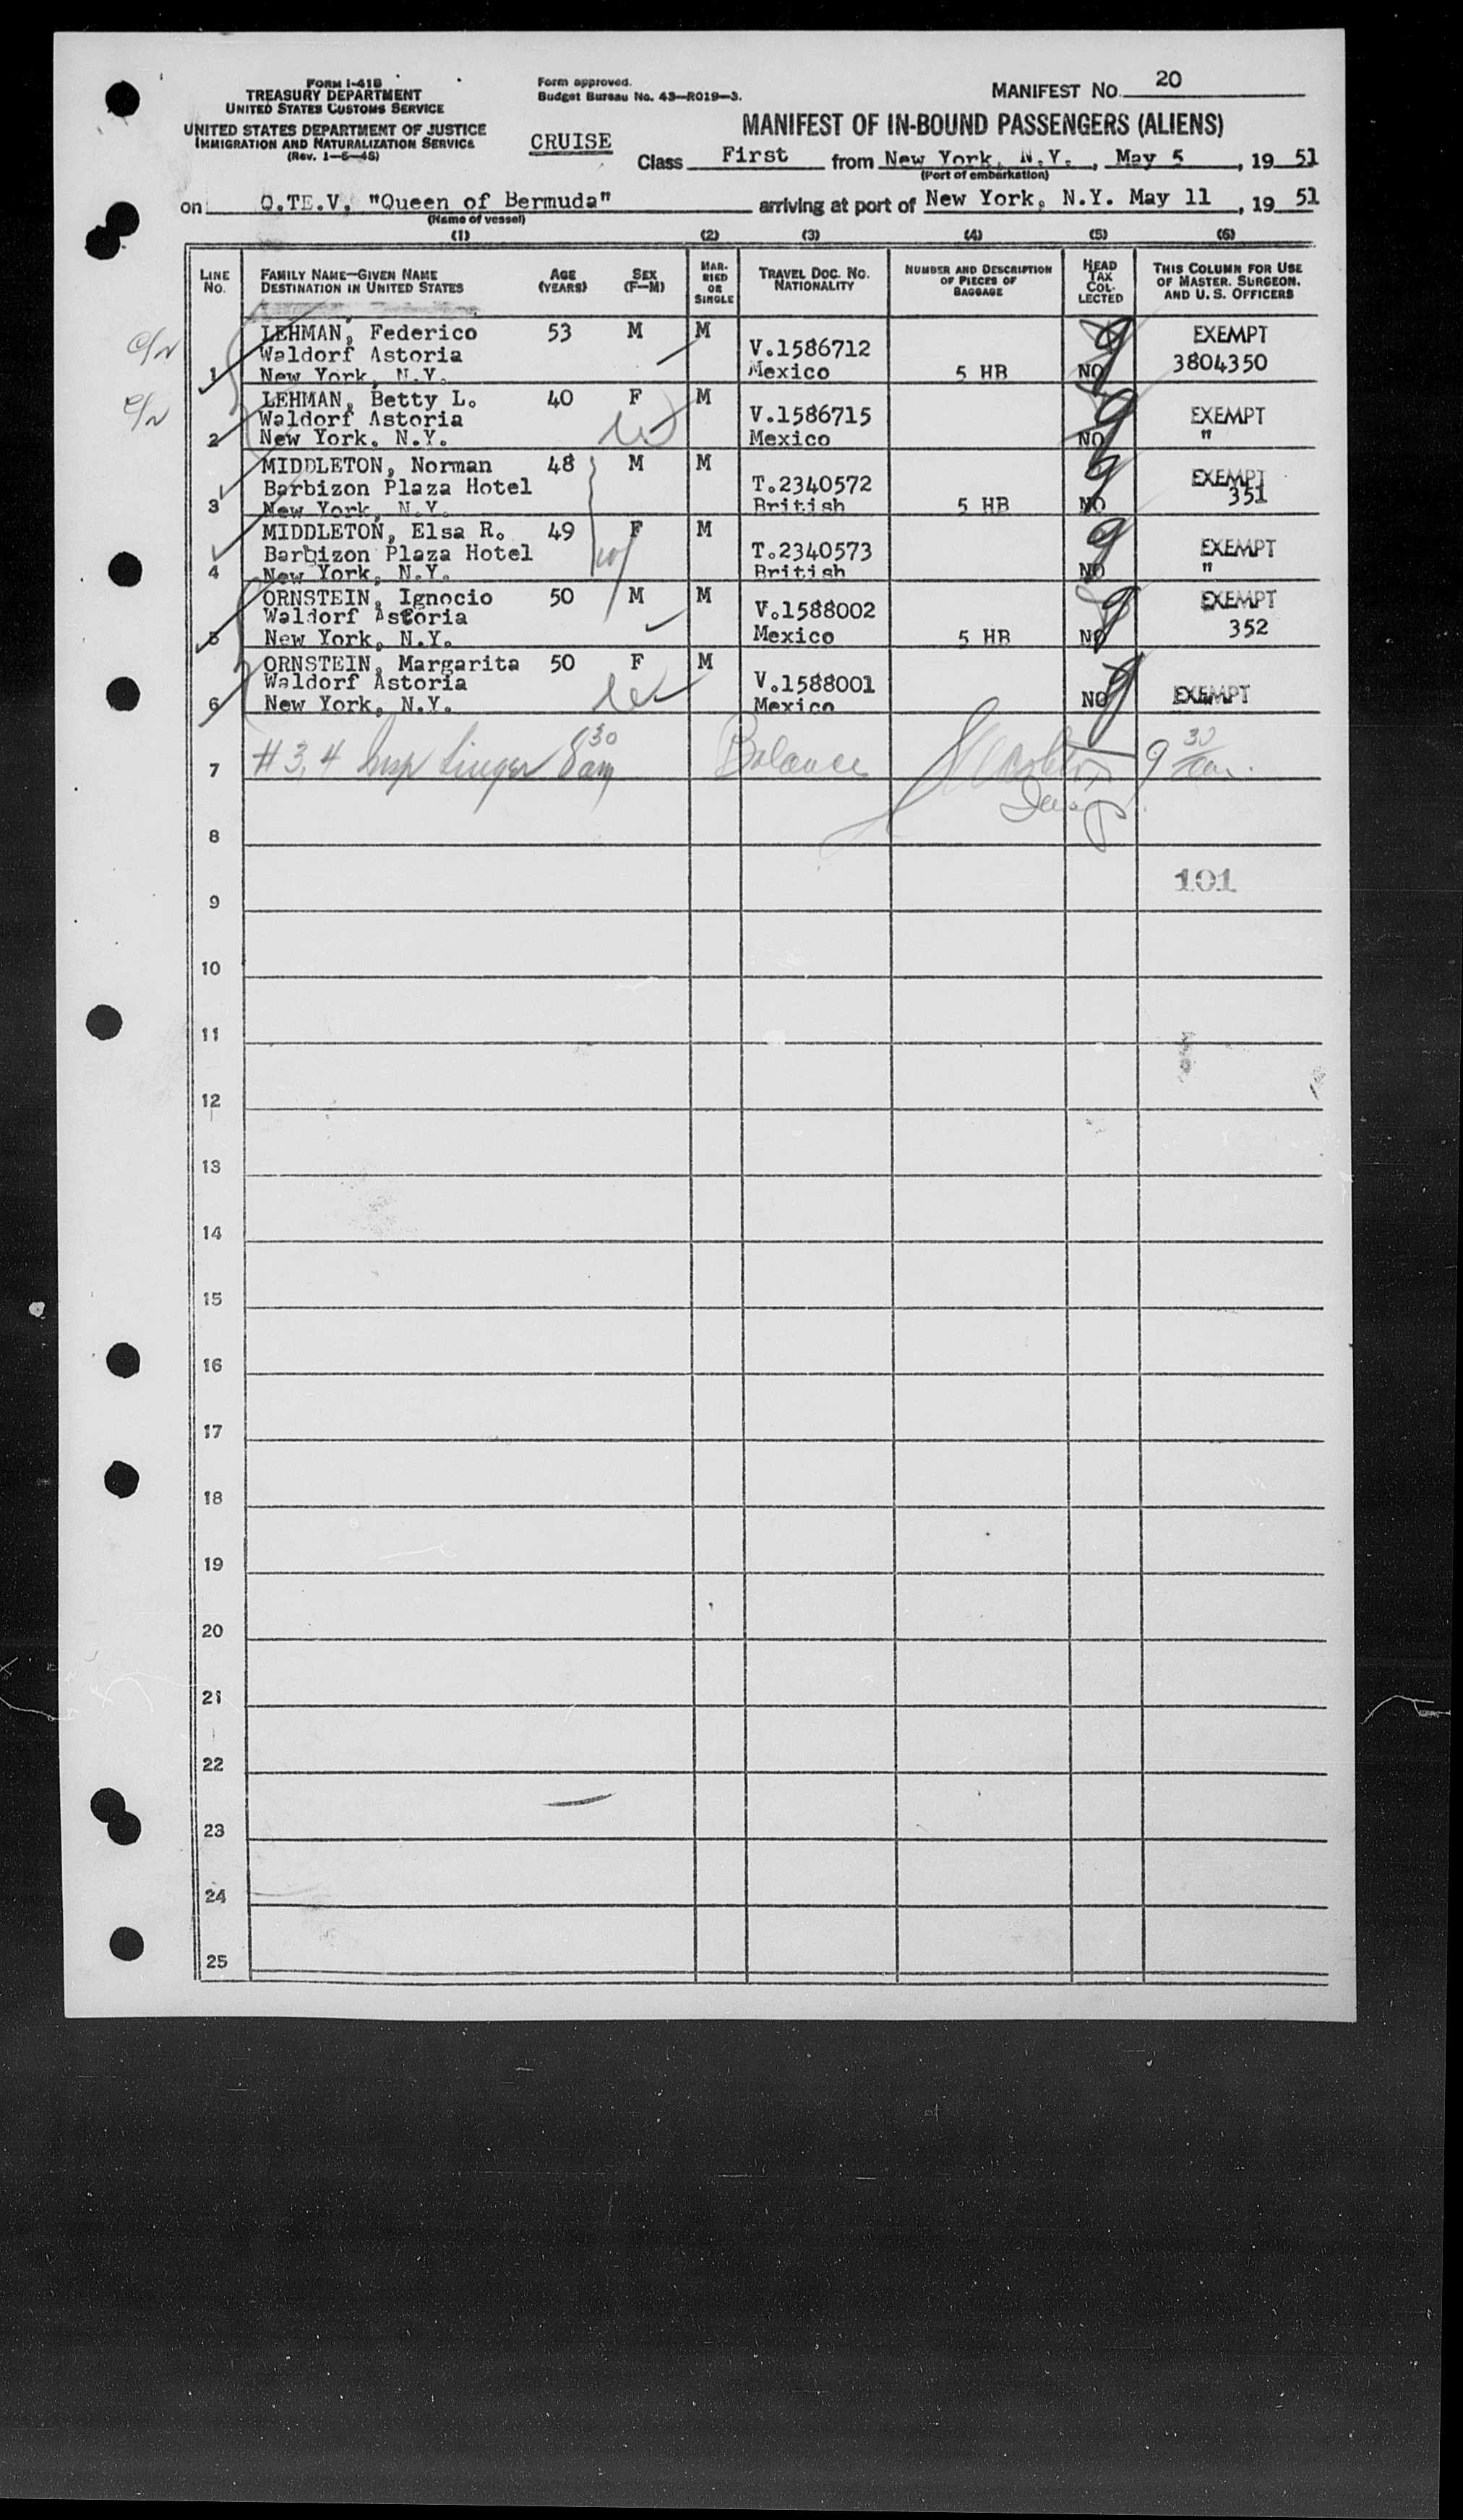 FORM I-418
TREASURY DEPARTMENT
UNITED STATES CUSTOMS SERVICE
UNITED STATES DEPARTMENT OF JUSTICE
IMMIGRATION AND NATURALIZATION SERVICE
(Rev. 1-5-45)
Form approved.
Budget Bureau No. 43-R019-3.
CRUISE
MANIFEST NO. 20
MANIFEST OF IN-BOUND PASSENGERS (ALIENS)
Class First from New York, N.Y., May 5, 19 51
(Port of embarkation)
on Q.TE.V, "Queen of Bermuda" arriving at port of New York, N.Y. May 11, 19 51
(Name of vessel)
(1) (2) (3) (4) (5) (6)
LINE NO.
FAMILY NAME—GIVEN NAME
DESTINATION IN UNITED STATES
AGE (YEARS)
SEX (F-M)
MARRIED OR SINGLE
TRAVEL DOC. NO. NATIONALITY
NUMBER AND DESCRIPTION OF PIECES OF BAGGAGE
HEAD TAX COLLECTED
THIS COLUMN FOR USE OF MASTER, SURGEON, AND U. S. OFFICERS
LEHMAN, Federico 53 M M EXEMPT
Waldorf Astoria V.1586712 3804350
1 New York, N.Y. Mexico 5 HB NO
LEHMAN, Betty L. 40 F M
Waldorf Astoria V.1586715 EXEMPT
2 New York, N.Y. Mexico NO "
MIDDLETON, Norman 48 M M
Barbizon Plaza Hotel T.2340572 EXEMPT
3 New York, N.Y. British 5 HB NO 351
MIDDLETON, Elsa R. 49 F M
Barbizon Plaza Hotel T.2340573 EXEMPT
4 New York, N.Y. British NO "
ORNSTEIN, Ignocio 50 M M EXEMPT
Waldorf Astoria V.1588002
5 New York, N.Y. Mexico 5 HB NO 352
ORNSTEIN, Margarita 50 F M
Waldorf Astoria V.1588001
6 New York, N.Y. Mexico NO EXEMPT
7 #3,4 Insp Singer 8 30 am Balance 9 30 am.
Insp.
8
101
9
10
11
12
13
14
15
16
17
18
19
20
21
22
23
24
25